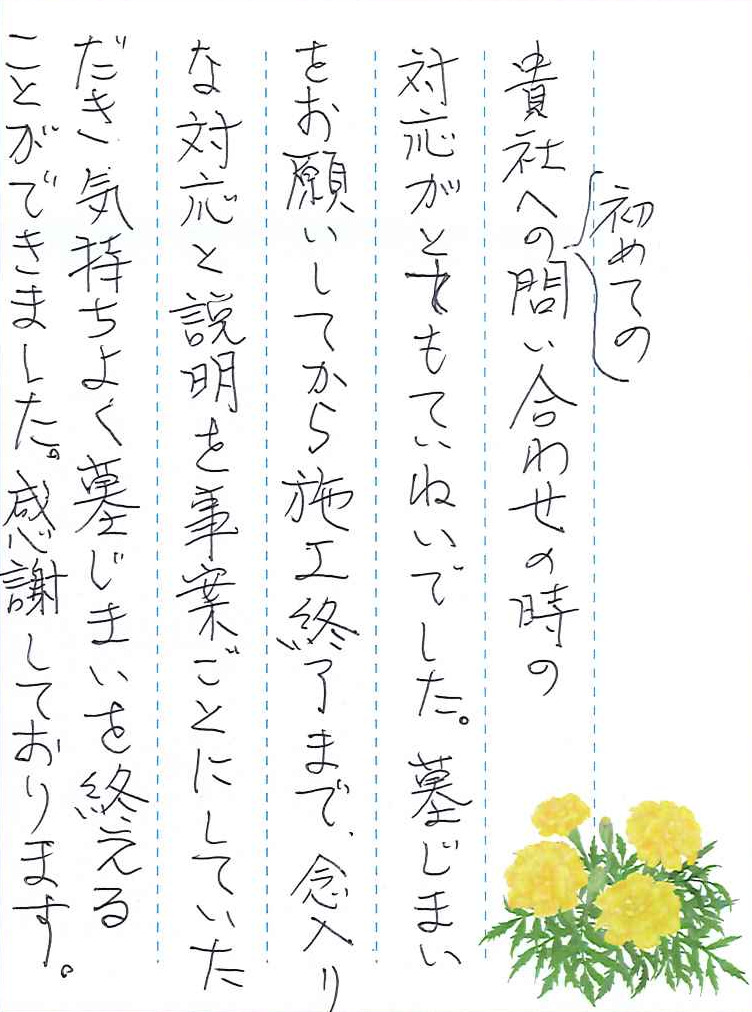 初めての
貴社への問い合わせの時の
対応がとてもていねいでした。墓じまい
をお願いしてから施工終了まで、念入り
な対応と説明を事案ごとにしていた
だき気持ちよく墓じまいを終える
ことができました。感謝しております。